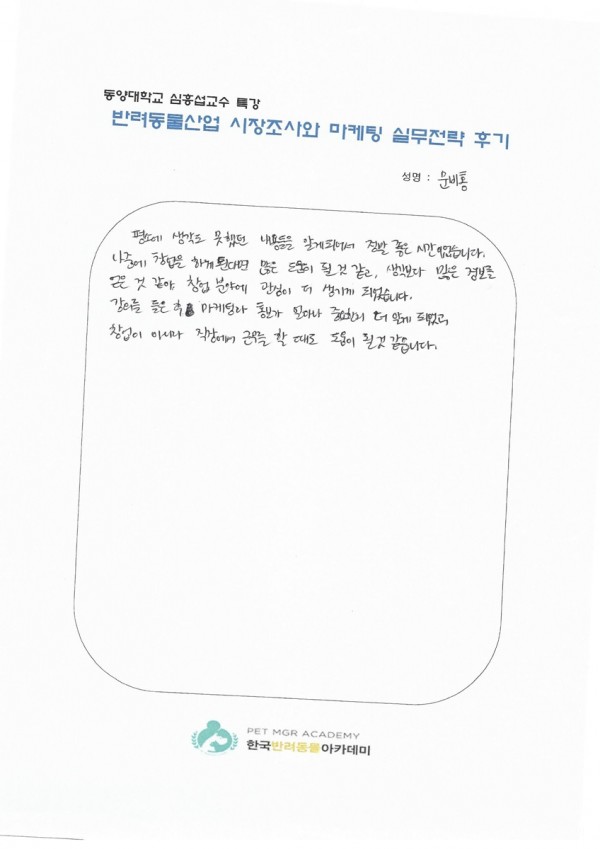 동양대학교 심홍섭교수 특강
반려동물산업 시장조사와 마케팅 실무전략 후기
성명 : 문비통
평소에 생각도 못했던 내용들을 알게되어서 정말 좋은 시간이었습니다.
나중에 창업을 하게 된다면 많은 도움이 될 것 같고, 생각보다 많은 정보를
얻은 것 같아 창업 분야에 관심이 더 생기게 되었습니다.
강의를 들은 후 마케팅과 홍보가 얼마나 중요한지 더 알게 되었고
창업이 아니라 직장에서 근무를 할 때도 도움이 될것 같습니다.
PET MGR ACADEMY
한국반려동물아카데미